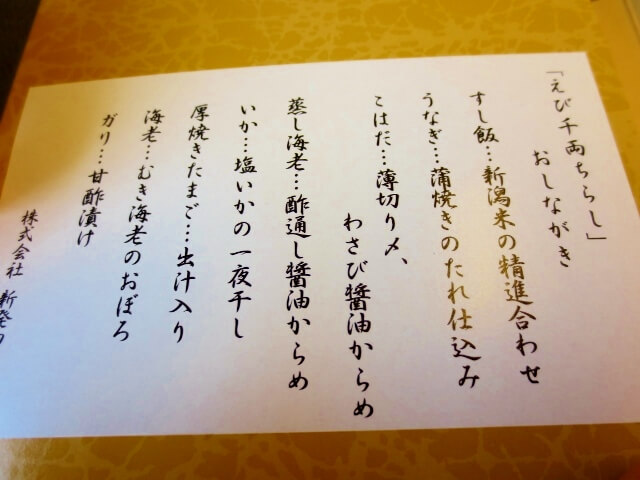 「えび千両ちらし」
おしながき
すし飯…新潟米の精進合わせ
うなぎ…蒲焼きのたれ仕込み
こはだ…薄切り〆、
わさび醤油からめ
蒸し海老…酢通し醤油からめ
いか…塩いかの一夜干し
厚焼きたまご…出汁入り
海老…むき海老のおぼろ
ガリ…甘酢漬け
株式会社 新発